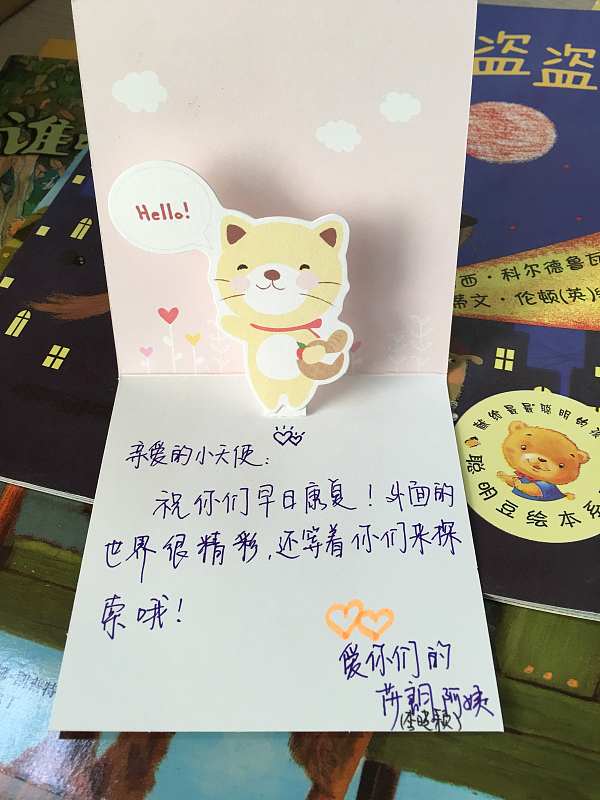 谁
盗盗
Hello!
西·科尔德鲁瓦
蒂文·伦顿(英)
献给最最聪明的
明豆绘本系
亲爱的小天使:
祝你们早日康复!外面的
世界很精彩,还等着你们来探
索哦!
爱你们的
阿姨